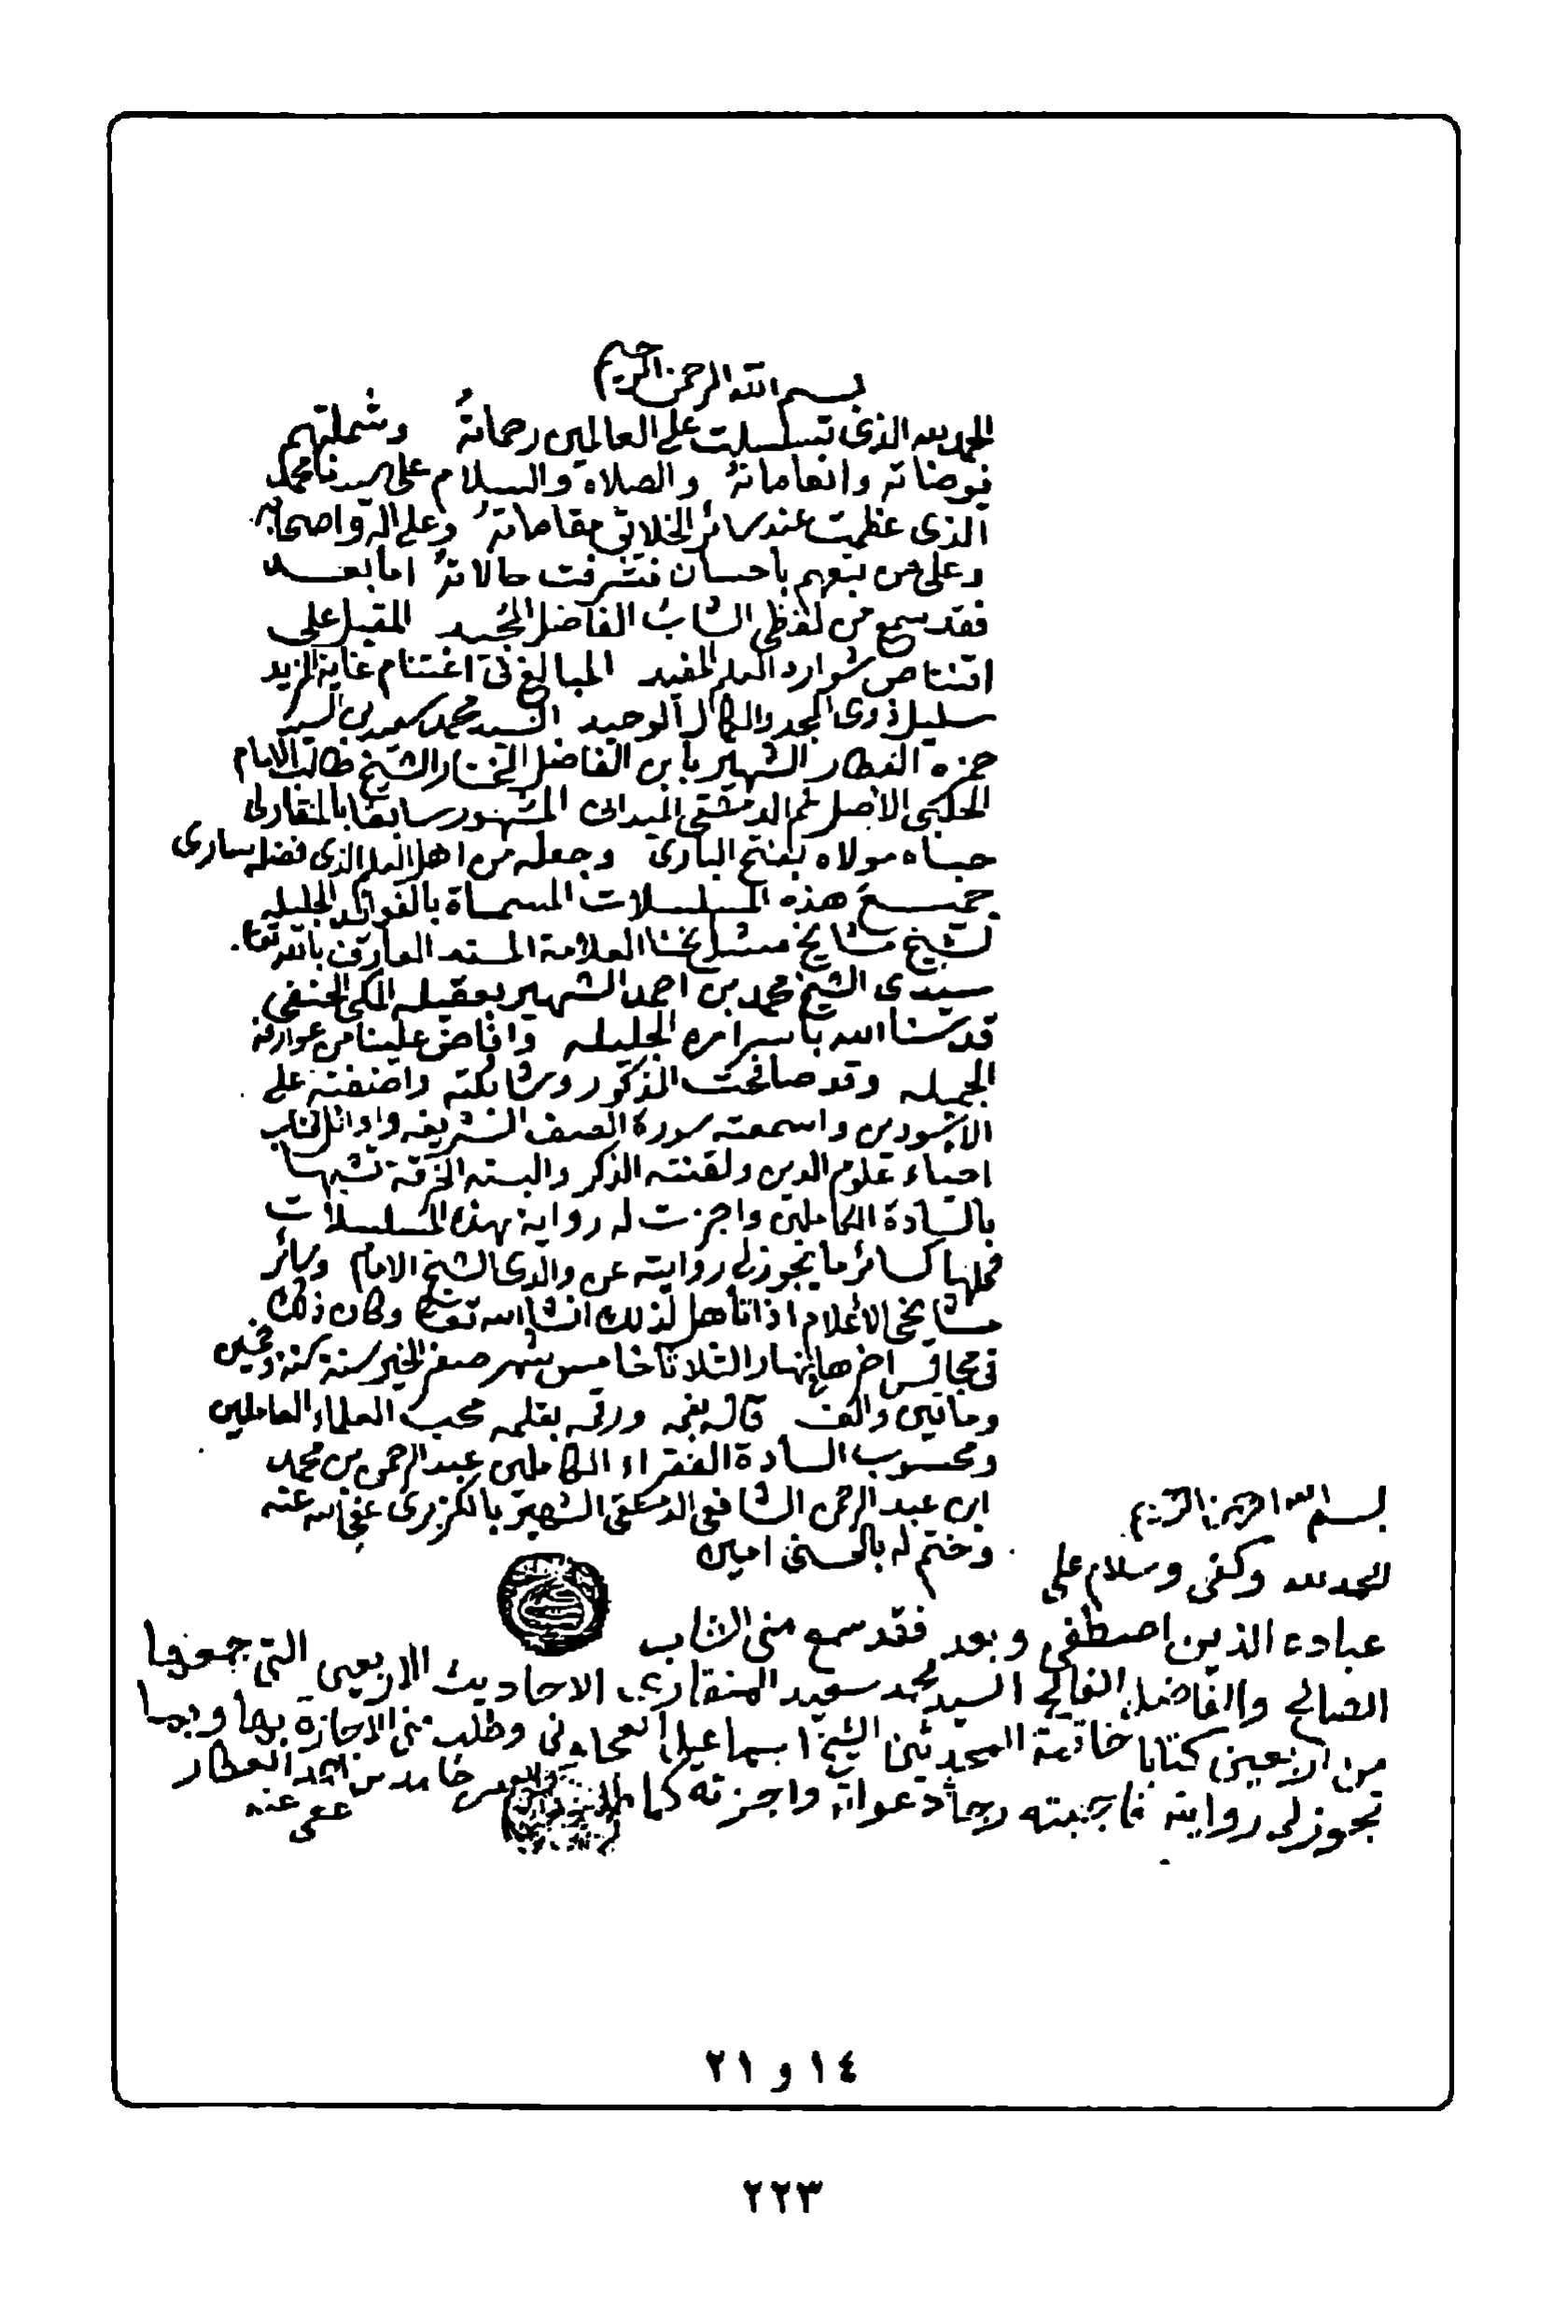 بسم الله الرحمن الرحيم
الحمد لله الذى تسلسلت على العالمين رحماته وشملتهم
فيوضاته وانعاماته والصلاه والسلام على سيدنا محمد
الذى عظمت عند سائر الخلائق مقاماته وعلى اله واصحابه
وعلى من تبعهم باحسان فتشرفت حالاته اما بعد
فقد سمع من لفظى الشاب الفاضل المجيد المقبل على
اقتناص شوارد العلم المفيد المبالغ فى اغتنام غاية المزيد
سليل ذوى المجد والكمال الوحيد السيد محمد سعيد بن السيد
حمزه العطار الشهير بابن الفاضل المختار الشيخ طالب الامام
الحلبى الاصل ثم الدمشقى الميدانى المشهور سابقا بالمنقارلى
حباه مولاه بفتح البارى وجعله من اهل العلم الذى فضله سارى
جميع هذه المسلسلات المسماة بالفوائد الجليله
لشيخ مشايخ مشايخنا العلامة المسند العارف بالله تعالى
سيدى الشيخ محمد بن احمد الشهير بعقيله المكى الحنفى
قدسنا الله باسراره الجليله وافاض علينا من عوارفه
الجميله وقد صافحت المذكور وشابكته واضفته على
الاسودين واسمعته سورة الصف الشريفه واوائل كتاب
احياء علوم الدين ولقنته الذكر والبسته الخرقة تشبها
بالسادة الكاملين واجزت له رواية هذه المسلسلات
كسائر ما يجوز لى روايته عن والدى الشيخ الامام وسائر
مشايخى الاعلام اذا تأهل لذلك انشا الله تعالى وكان ذلك
فى مجالس اخرها نهار الثلاثا خامس شهر صفر الخير سنة ستة وخمسين
ومايتين والف قاله بفمه ورقمه بقلمه محب العلماء العاملين
ومحسوب السادة الفقراء الكاملين عبد الرحمن بن محمد
ابن عبد الرحمن الشافعى الدمشقى الشهير بالكزبرى عفى الله عنه
وختم له بالحسنى امين
بسم الله الرحمن الرحيم
الحمد لله وكفى وسلام على
عباده الذين اصطفى وبعد فقد سمع منى الشاب
الصالح والفاضل الفالح السيد محمد سعيد المنقارى الاحاديث الاربعين التى جمعها
من اربعين كتابا خاتمة المحدثين الشيخ اسماعيل العجلونى وطلب منى الاجازة بها وبما
تجوز لى روايته فاجبته رجا دعواته واجزته كما حامد بن احمد العطار
عفى عنه
١٤ و ٢١
٢٢٣